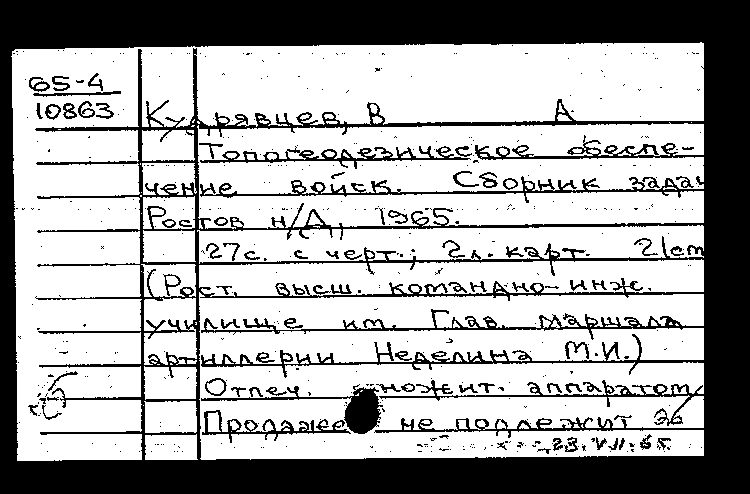 65-4
10863
Кудрявцев, В А
Топогеодезическое обеспе-
чение войск. Сборник задач
Ростов н/Д, 1965.
27с. с черт.; 2л. карт. 21cm
(Рост. высш. командно-инж.
училище им. Глав. маршала
артиллерии Неделина М.И.)
Отпеч. множит. аппаратом
Продаже не подлежит
23.VII.65